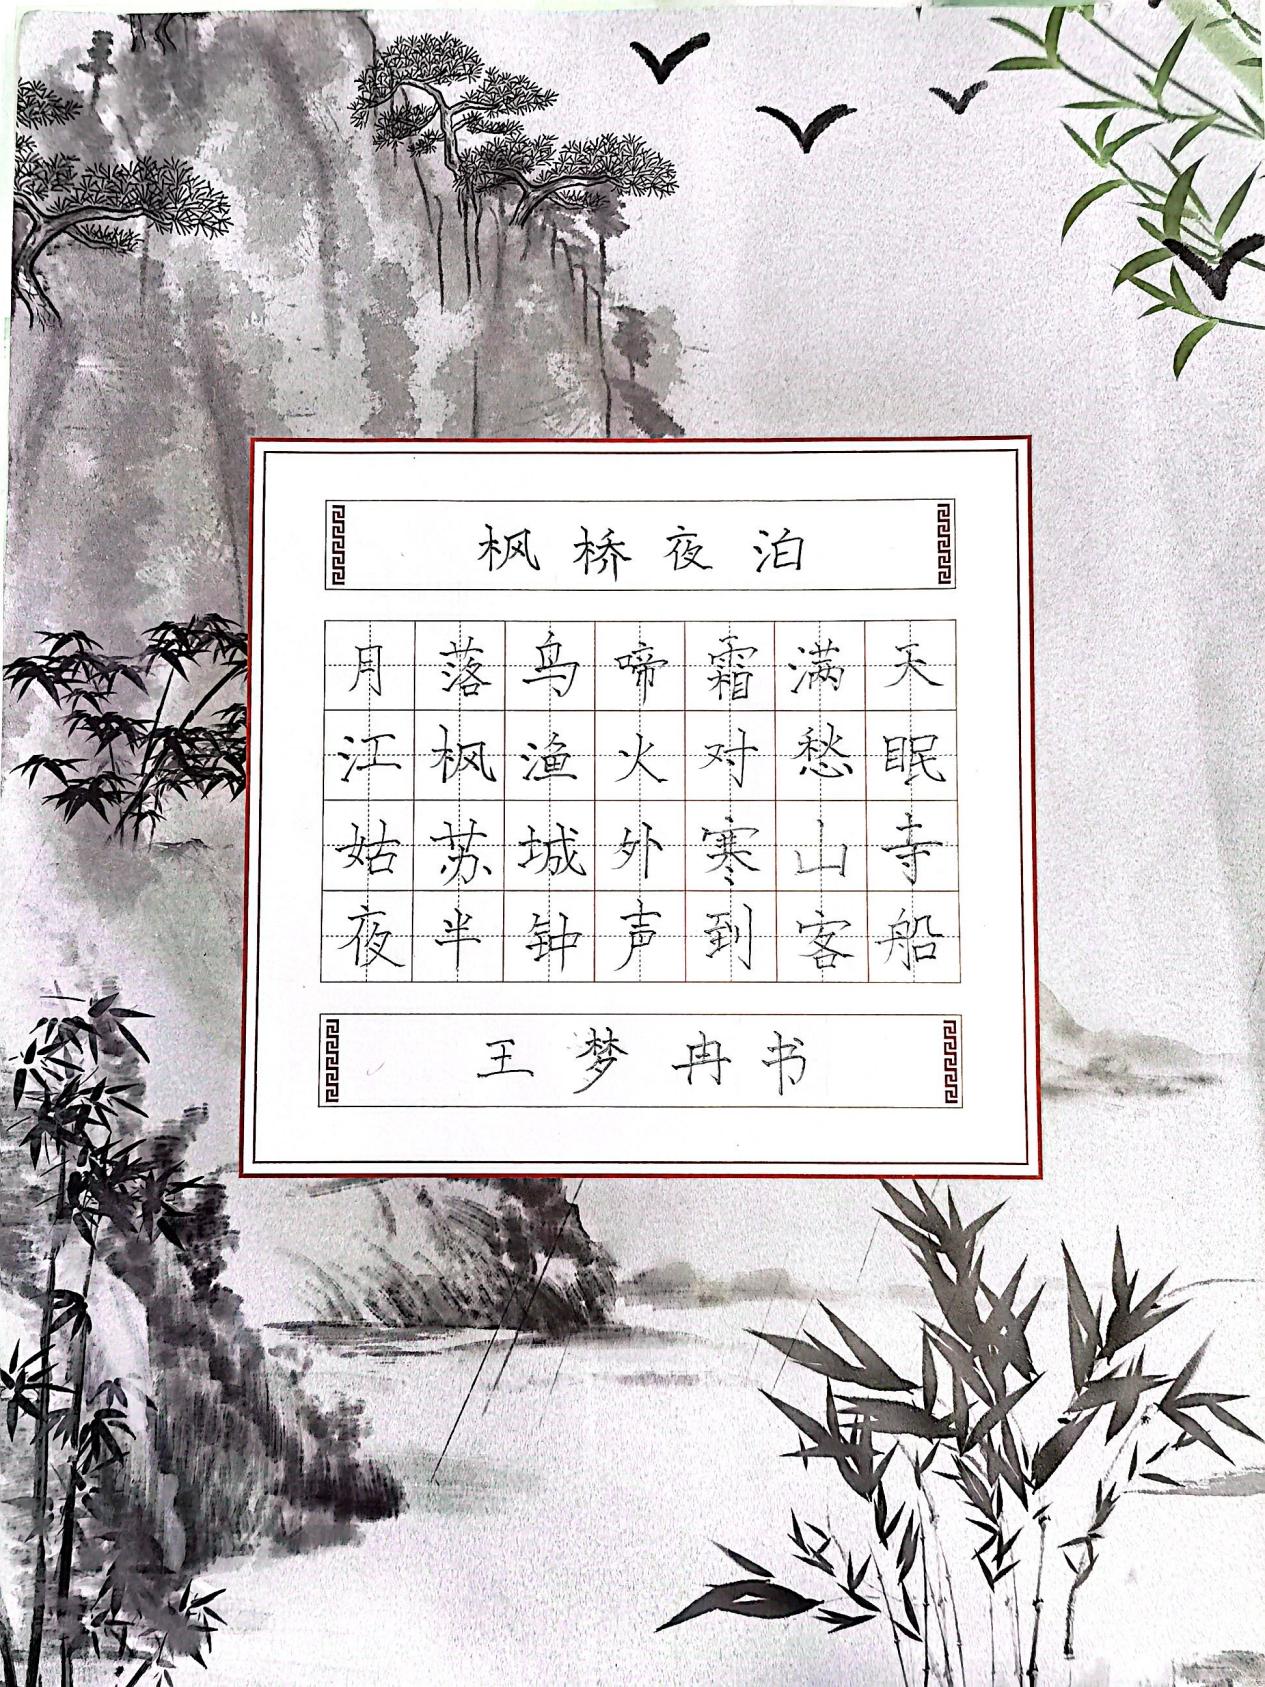 枫桥夜泊
月落鸟啼霜满天
江枫渔火对愁眠
姑苏城外寒山寺
夜半钟声到客船
王梦冉书